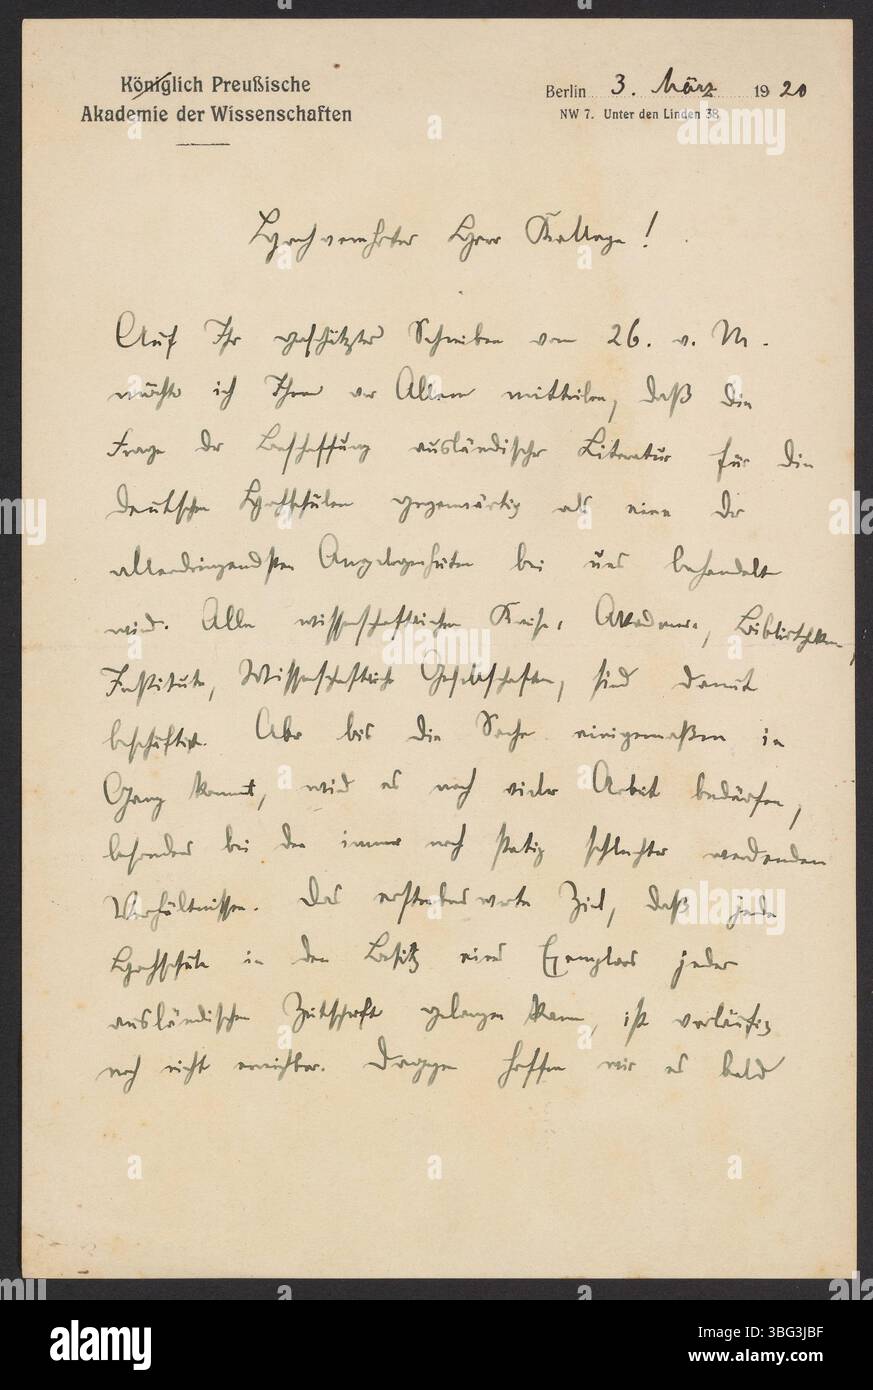 Königlich Preußische
Akademie der Wissenschaften
Berlin 3. März 1920
NW 7. Unter den Linden 38
Hochverehrter Herr Kollege!
Auf Ihr geschätztes Schreiben vom 26. v. M.
möchte ich Ihnen vor Allem mitteilen, daß die
Frage der Beschaffung ausländischer Literatur für die
deutschen Hochschulen gegenwärtig als eine der
allerdringendsten Angelegenheiten bei uns behandelt
wird. Alle wissenschaftlichen Kreise, Akademien, Bibliotheken,
Institute, Wissenschaftliche Gesellschaften, sind damit
beschäftigt. Aber bis die Sache einigermaßen in
Gang kommt, wird es noch vieler Arbeit bedürfen,
besonders bei den immer noch stetig schlechter werdenden
Verhältnissen. Das erstrebenswerte Ziel, daß jede
Hochschule in den Besitz eines Exemplars jeder
ausländischen Zeitschrift gelangen kann, ist vorläufig
noch nicht erreichbar. Dagegen hoffen wir es bald
alamy
Image ID: 3BG3JBF
www.alamy.com